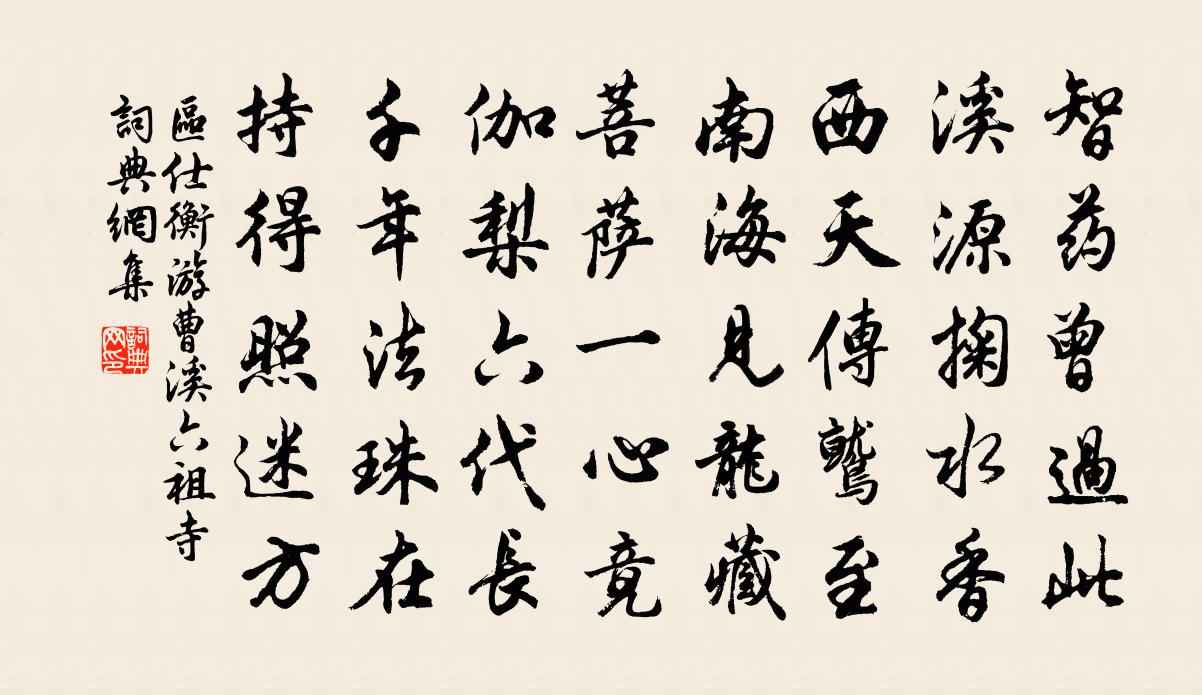 智药曾過此
溪源掬水香
西天傳鷲至
南海見龍藏
菩萨一心竟
伽梨六代長
千年法珠在
持得照迷方
區仕衡游曹溪六祖寺
詞典網集
詞典网印